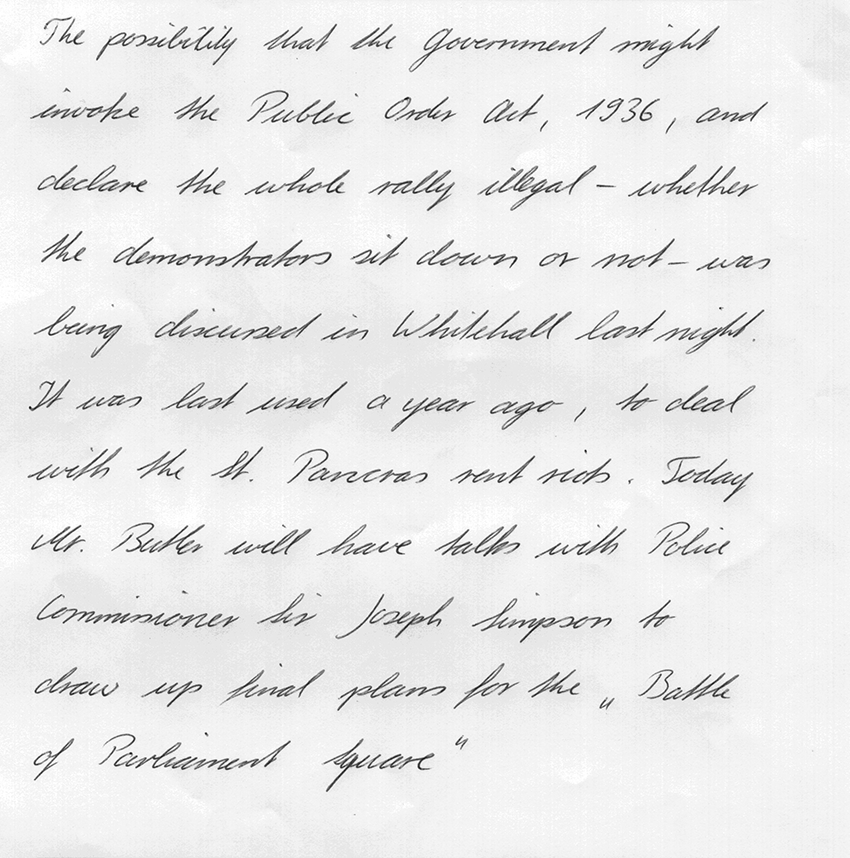 The possibility that the Government might
invoke the Public Order Act, 1936, and
declare the whole rally illegal – whether
the demonstrators sit down or not – was
being discussed in Whitehall last night.
It was last used a year ago, to deal
with the St. Pancras rent riots. Today
Mr. Butler will have talks with Police
Commissioner Sir Joseph Simpson to
draw up final plans for the „Battle
of Parliament Square"